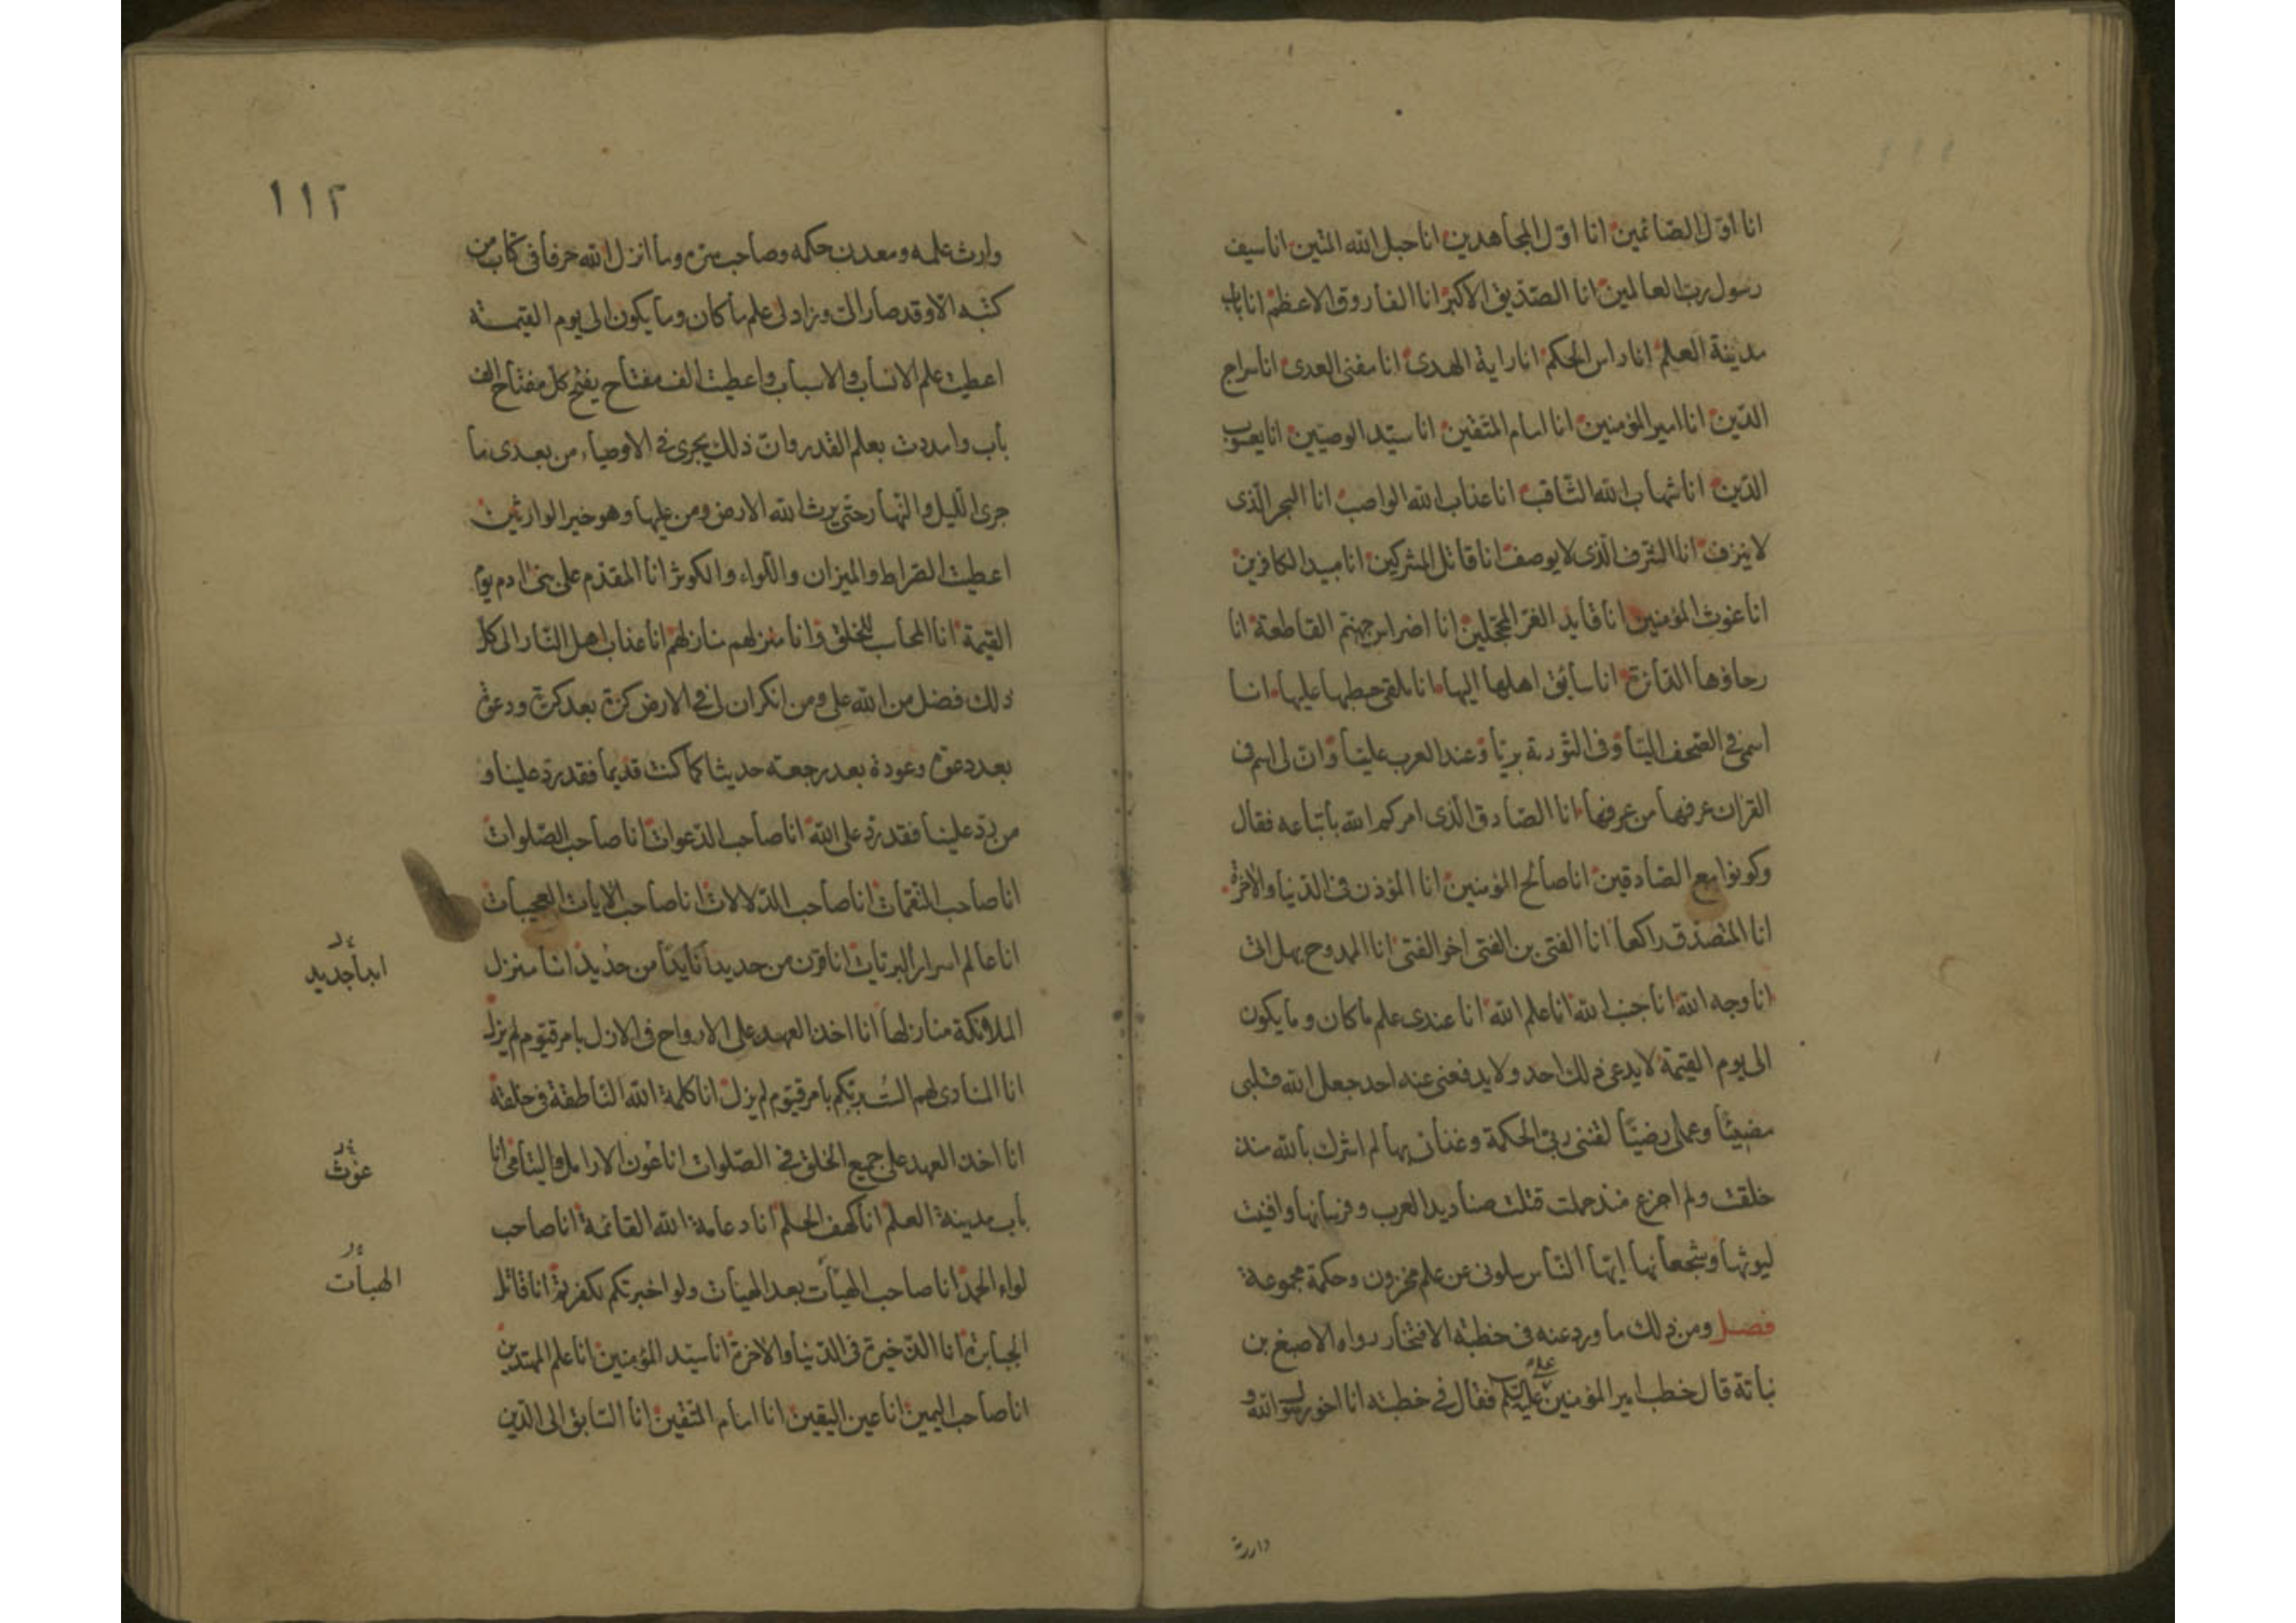 انا اوّل الصّائمين انا اوّل المجاهدين انا حبل الله المتين انا سيف
رسول ربّ العالمين انا الصّدّيق الاكبر انا الفاروق الاعظم انا باب
مدينة العلم انا راس الحكم انا راية الهدى انا مفنى العدى انا سراج
الدّين انا امير المؤمنين انا امام المتّقين انا سيّد الوصيّين انا يعسوب
الدّين انا شهاب الله الثّاقب انا عذاب الله الواصب انا البحر الّذى
لا ينزف انا الشرف الّذى لا يوصف انا قاتل المشركين انا مبيد الكافرين
انا غوث المؤمنين انا قايد الغرّ المحجّلين انا اضراس جهنّم القاطعة انا
رحاؤها الدّائرة انا سائق اهلها اليها انا ملقى حطبها عليها انا
اسمى فى الصّحف اليّا وفى التّورية بريّا وعند العرب عليّا وانّ لى اسم فى
القران عرفها من عرفها انا الصّادق الّذى امركم الله باتّباعه فقال
وكونوا مع الصّادقين انا صالح المؤمنين انا المؤذن فى الدّنيا والاخرة
انا المتصدّق راكعا انا الفتى بن الفتى اخو الفتى انا الممدوح بهل اتى
انا وجه الله انا جنب الله انا علم الله انا عندى علم ما كان وما يكون
الى يوم القيمة لا يدعى ذلك احد ولا يدفعنى عنه احد جعل الله قلبى
مضيئا وعملى رضيّا لقننى ربّى الحكمة وغذانى بها لم اشرك بالله منذ
خلقت ولم اجزع منذ حملت قتلت صناديد العرب وفرسانها وافنيت
ليوثها وشجعانها ايّها النّاس سلونى عن علم مخزون وحكمة مجموعة
فصل ومن ذلك ما ورد عنه فى خطبة الافتخار رواه الاصبغ بن
نباتة قال خطب امير المؤمنين عليه السلم فقال فى خطبته انا اخو رسول الله و
وارث
١١٢
وارث علمه ومعدن حكمه وصاحب سرّه وما انزل الله حرفا فى كتاب من
كتبه الّا وقد صار الىّ وزاد لى علم ما كان وما يكون الى يوم القيمة
اعطيت علم الانساب والاسباب واعطيت الف مفتاح يفتح كلّ مفتاح الف
باب وامددت بعلم القدر وانّ ذلك يجرى فى الاوصياء من بعدى ما
جرى اللّيل والنّهار حتى يرث الله الارض ومن عليها وهو خير الوارثين
اعطيت الصّراط والميزان واللّواء والكوثر انا المقدّم على بنى ادم يوم
القيمة انا المحاسب للخلق وانا منزلهم منازلهم انا عذاب اهل النّار الى كلّ
ذلك فضل من الله علىّ ومن انكر ان لى فى الارض كرّة بعد كرّة ودعوة
بعد دعوة وعودة بعد رجعته حديثا كما كنت قديما فقد ردّ علينا و
من ردّ علينا فقد ردّ على الله انا صاحب الدّعوات انا صاحب الصّلوات
انا صاحب النّقمات انا صاحب الدّلالات انا صاحب الايات العجيبات
انا عالم اسرار البريّات انا قرن من حديد انا ابدا من حديد انا منزل
ابدا جديد
الملائكة منازلها انا اخذ العهد على الارواح فى الازل بامر قيّوم لم يزل
انا المنادى لهم الست بربّكم بامر قيّوم لم يزل انا كلمة الله النّاطقة فى خلقه
انا اخذ العهد على جميع الخلق فى الصّلوات انا غوث الارامل واليتامى انا
غوث
باب مدينة العلم انا كهف الحلم انا دعامة الله القائمة انا صاحب
لواء الحمد انا صاحب الهبات بعد الهبات ولو اخبرتكم لكفرتم انا قاتل
الهبات
الجبابرة انا الذّخيرة فى الدّنيا والاخرة انا سيّد المؤمنين انا علم المهتدين
انا صاحب اليمين انا عين اليقين انا امام المتّقين انا السّابق الى الدّين